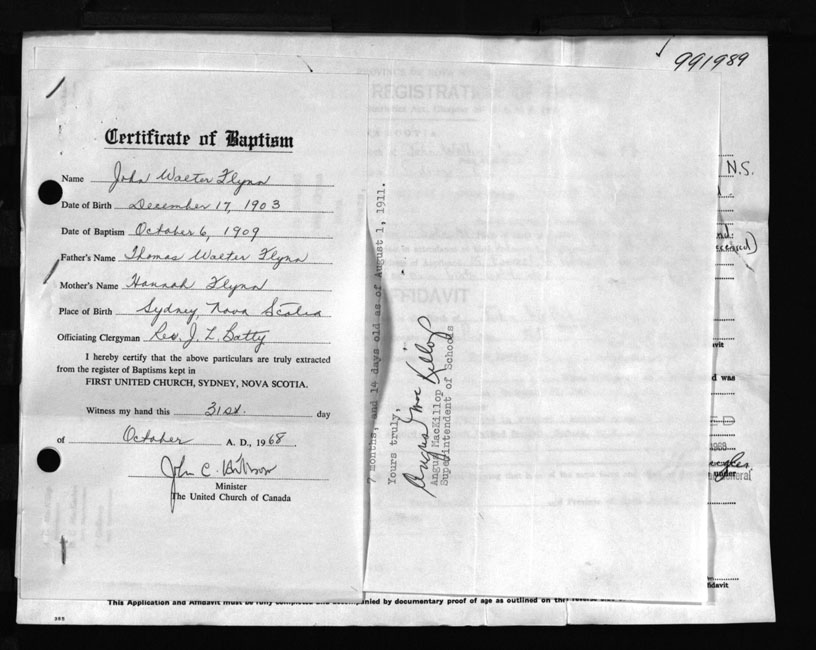 991989
Certificate of Baptism
Name John Walter Flynn
Date of Birth December 17, 1903
Date of Baptism October 6, 1909
Father's Name Thomas Walter Flynn
Mother's Name Hannah Flynn
Place of Birth Sydney, Nova Scotia
Officiating Clergyman Rev. J. L. Batty
I hereby certify that the above particulars are truly extracted
from the register of Baptisms kept in
FIRST UNITED CHURCH, SYDNEY, NOVA SCOTIA.
Witness my hand this 31st. day
of October A. D., 1968
John C.
Minister
The United Church of Canada
7 months, and 14 days old as of August 1, 1911.
Yours truly,
Angus MacKillop
Angus MacKillop
Superintendent of Schools
REGISTRATI
AFFIDAVIT
N.S.
d was
under
General
fidavit
This Application and Affidavit must be fully completed and accompanied by documentary proof of age as outlined on the